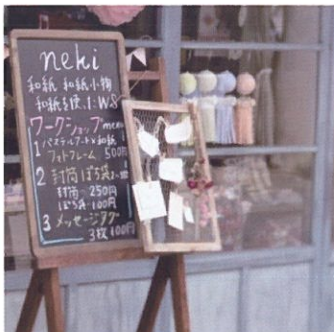 neki
和紙 和紙小物
和紙を使った WS
ワークショップ menu
1 パステルアート×和紙
フォトフレーム 500円
2 封筒 ぽち袋
封筒 250円
ぽち袋 100円
3 メッセージタグ
3枚 100円